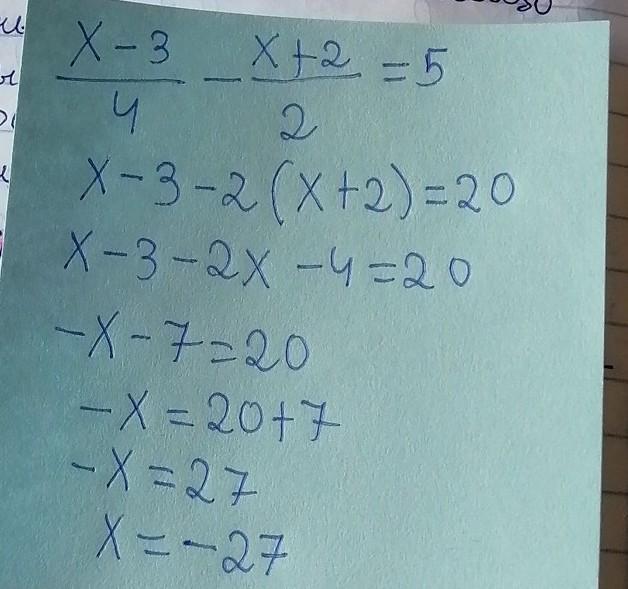 x-3/4 - x+2/2 = 5
x-3-2(x+2)=20
x-3-2x-4=20
-x-7=20
-x=20+7
-x=27
x=-27